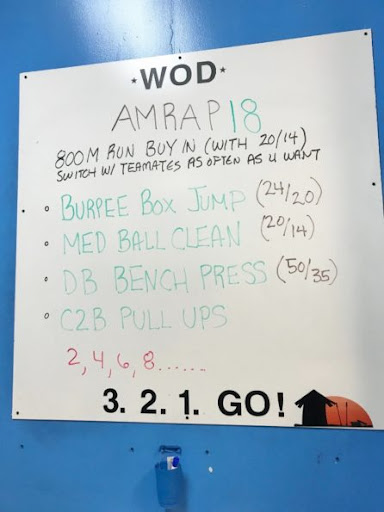 *WOD*
AMRAP 18
800M RUN BUY IN (WITH 20/14)
SWITCH W/ TEAMATES AS OFTEN AS U WANT
• BURPEE BOX JUMP (24/20)
• MED BALL CLEAN (20/14)
• DB BENCH PRESS (50/35)
• C2B PULL UPS
2,4,6,8......
3. 2. 1. GO!